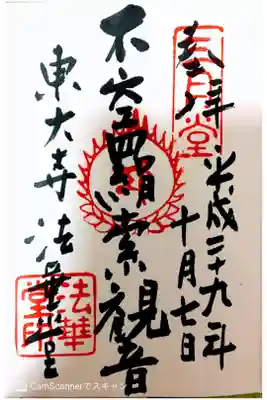 奉拝 平成二十九年
十月七日
三月堂
不空羂索観音
東大寺法華堂
法華
堂印
CamScannerでスキャン